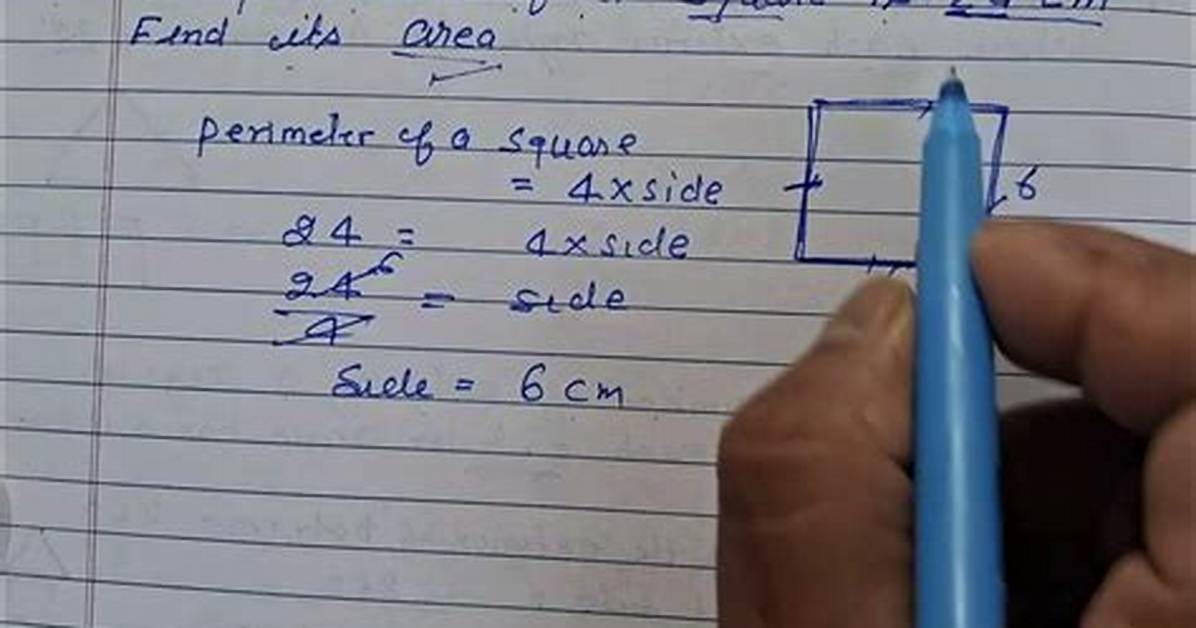 24 cm
Find its area
Perimeter of a square
= 4 x side
6
24 = 4 x side
24 6
4
= side
Side = 6 cm